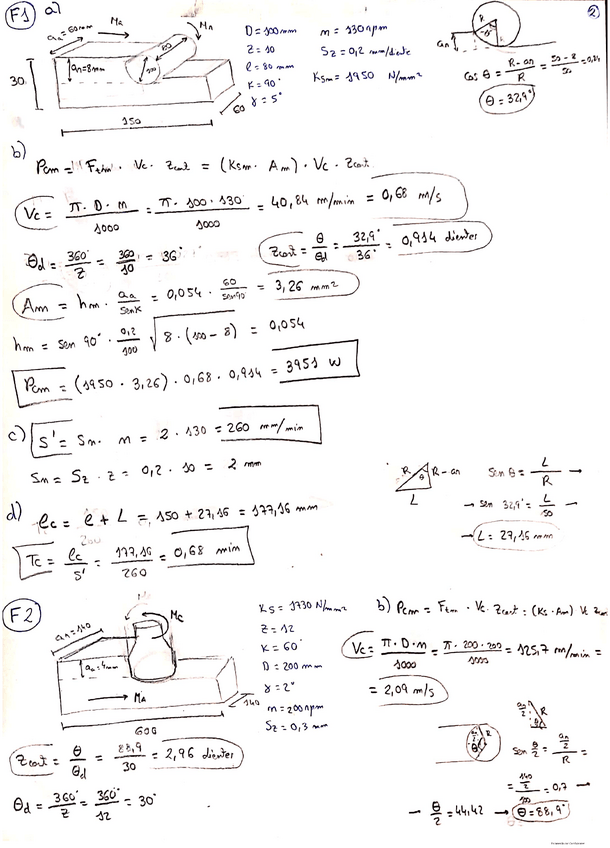 F1 a)
2
aa = 60mm MC Mn
an = 8mm
30
150
60
100
D = 100mm n = 130 rpm
Z = 10 Sz = 0,2 mm/diente
l = 80 mm
Ksm = 1950 N/mm²
K = 90°
γ = 5°
R
an
Cos θ = (R - an)/R = (50 - 8)/50 = 0,84
θ = 32,9°
b)
Pcm = Ftm · Vc · Zcort = (Ksm · Am) · Vc · Zcort
Vc = (π · D · n)/1000 = (π · 100 · 130)/1000 = 40,84 m/min = 0,68 m/s
θd = 360°/Z = 360/10 = 36° Zcort = θ/θd = 32,9°/36° = 0,914 dientes
Am = hm · aa/senK = 0,054 · 60/sen90 = 3,26 mm²
hm = sen 90° · 0,2/100 √(8 · (100 - 8)) = 0,054
Pcm = (1950 · 3,26) · 0,68 · 0,914 = 3951 W
c) S' = Sn · n = 2 · 130 = 260 mm/min
Sn = Sz · Z = 0,2 · 10 = 2 mm
R θ R - an L
Sen θ = L/R →
→ sen 32,9° = L/50 →
→ L = 27,16 mm
d) lc = l + L = 150 + 27,16 = 177,16 mm
Tc = lc/S' = 177,16/260 = 0,68 min
F2
an = 140
MC
aa = 4mm
MA
140
600
Ks = 1730 N/mm²
Z = 12
K = 60°
D = 200 mm
γ = 2°
n = 200 rpm
Sz = 0,3 mm
b) Pcm = Ftm · Vc · Zcort = (Ks · Am) Vc Zcort
Vc = (π · D · n)/1000 = (π · 200 · 200)/1000 = 125,7 m/min =
= 2,09 m/s
Zcort = θ/θd = 88,9/30 = 2,96 dientes
θd = 360°/Z = 360°/12 = 30°
an/2 R
Sen θ/2 = (an/2)/R =
= (140/2)/100 = 0,7 →
→ θ/2 = 44,42 → θ = 88,9°